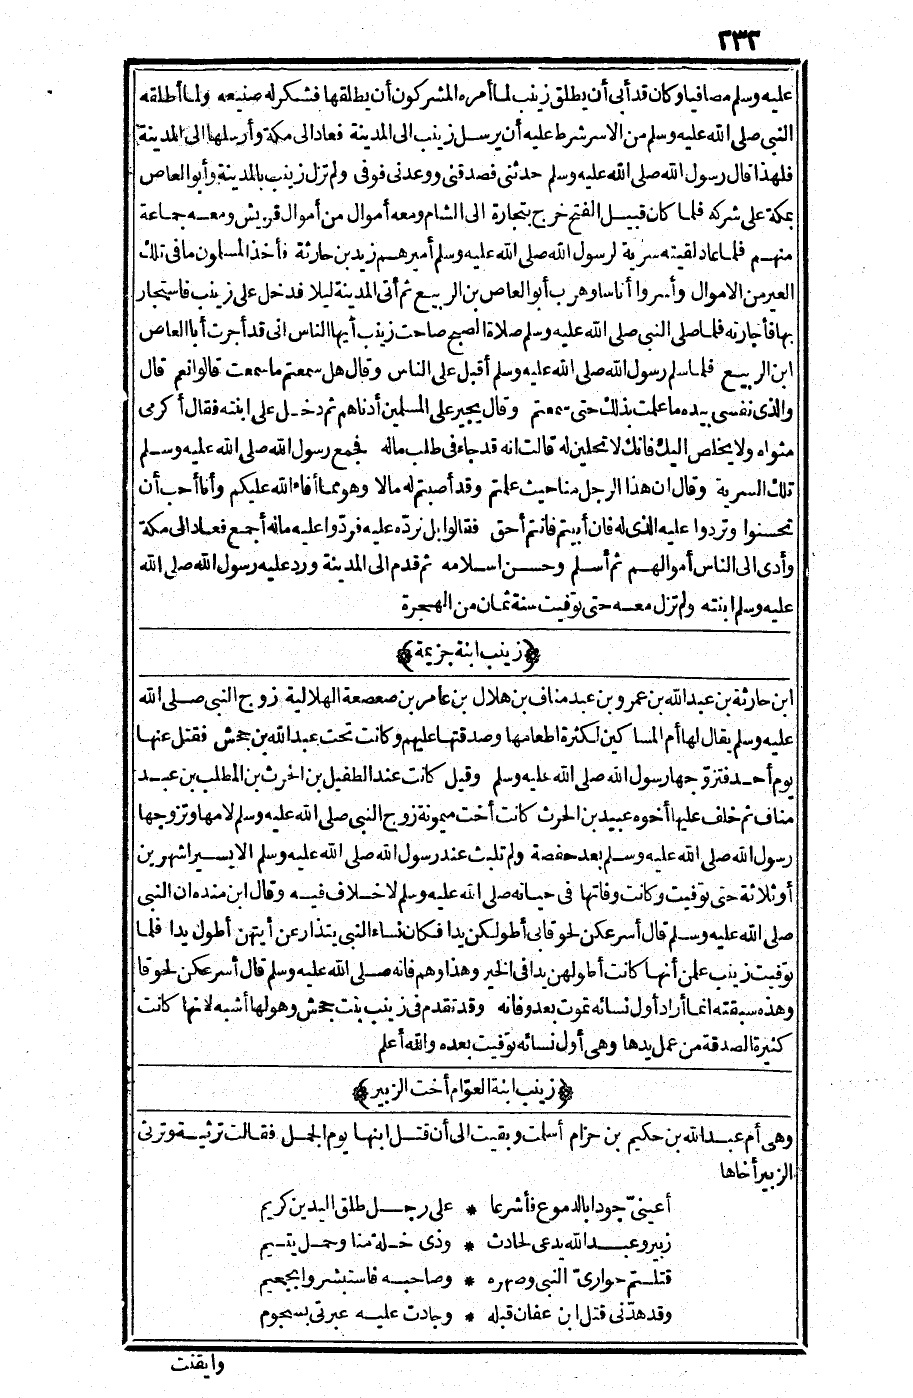 ٢٣٢
عليه وسلم مصافيا وكان قد أبى أن يطلق زينب لما أمره المشركون أن يطلقها فشكر له صنيعه ولما أطلقه
النبي صلى الله عليه وسلم من الاسر شرط عليه أن يرسل زينب الى المدينة فعاد الى مكة وأرسلها الى المدينة
فلهذا قال رسول الله صلى الله عليه وسلم حدثني فصدقني ووعدني فوفى ولم تزل زينب بالمدينة وأبو العاص
بمكة على شركه فلما كان قبيل الفتح خرج بتجارة الى الشام ومعه أموال من أموال قريش ومعه جماعة
منهم فلما عاد لقيته سرية لرسول الله صلى الله عليه وسلم أميرهم زيد بن حارثة فأخذ المسلمون ما فى تلك
العير من الاموال وأسروا أناسا وهرب أبو العاص بن الربيع ثم أتى المدينة ليلا فدخل على زينب فاستجار
بها فأجارته فلما صلى النبي صلى الله عليه وسلم صلاة الصبح صاحت زينب أيها الناس انى قد أجرت أبا العاص
ابن الربيع فلما سلم رسول الله صلى الله عليه وسلم أقبل على الناس وقال هل سمعتم ما سمعت قالوا نعم قال
والذى نفسى بيده ما علمت بذلك حتى سمعتم وقال يجير على المسلمين أدناهم ثم دخل على ابنته فقال أكرمى
مثواه ولا يخلص اليك فانك لا تحلين له قالت انه قد جاء فى طلب ماله فجمع رسول الله صلى الله عليه وسلم
تلك السرية وقال ان هذا الرجل منا حيث علمتم وقد أصبتم له مالا وهو مما أفاء الله عليكم وأنا أحب أن
تحسنوا وتردوا عليه الذى له فان أبيتم فانتم أحق فقالوا بل نرده عليه فردوا عليه ماله أجمع فعاد الى مكة
وأدى الى الناس أموالهم ثم أسلم وحسن اسلامه ثم قدم الى المدينة ورد عليه رسول الله صلى الله
عليه وسلم ابنته ولم تزل معه حتى توفيت سنة ثمان من الهجرة
﴿زينب ابنة خزيمة﴾
ابن حارثة بن عبد الله بن عمرو بن عبد مناف بن هلال بن عامر بن صعصعة الهلالية زوج النبي صلى الله
عليه وسلم يقال لها أم المساكين لكثرة اطعامها وصدقتها عليهم وكانت تحت عبد الله بن جحش فقتل عنها
يوم أحد فتزوجها رسول الله صلى الله عليه وسلم وقيل كانت عند الطفيل بن الحرث بن المطلب بن عبد
مناف ثم خلف عليها أخوه عبيد بن الحرث كانت أخت ميمونة زوج النبي صلى الله عليه وسلم لامها وتزوجها
رسول الله صلى الله عليه وسلم بعد حفصة ولم تلبث عند رسول الله صلى الله عليه وسلم الا يسيرا شهرين
أو ثلاثة حتى توفيت وكانت وفاتها فى حياته صلى الله عليه وسلم لا خلاف فيه وقال ابن منده ان النبي
صلى الله عليه وسلم قال أسرعكن لحوقا بى أطولكن يدا فكان نساء النبي يتذارعن أيتهن أطول يدا فلما
توفيت زينب علمن أنها كانت أطولهن يدا فى الخير وهذا وهم فانه صلى الله عليه وسلم قال أسرعكن لحوقا
وهذه سبقته انما أراد أول نسائه تموت بعد وفاته وقد تقدم فى زينب بنت جحش وهو لها أشبه لانها كانت
كثيرة الصدقة من عمل يدها وهى أول نسائه توفيت بعده والله أعلم
﴿زينب ابنة العوّام أخت الزبير﴾
وهى أم عبد الله بن حكيم بن حزام أسلمت وبقيت الى أن قتل ابنها يوم الجمل فقالت ترثيه وترثى
الزبير أخاها
أعينىّ جودا بالدموع فأشرعا * على رجل طلق اليدين كريم
زبير وعبد الله يدعى لحادث * وذى خلة منا وحمل يتيم
قتلتم حوارىّ النبي وصهره * وصاحبه فاستبشروا بجحيم
وقد هدّنى قتل ابن عفان قبله * وجادت عليه عبرتى بسجوم
وايقنت